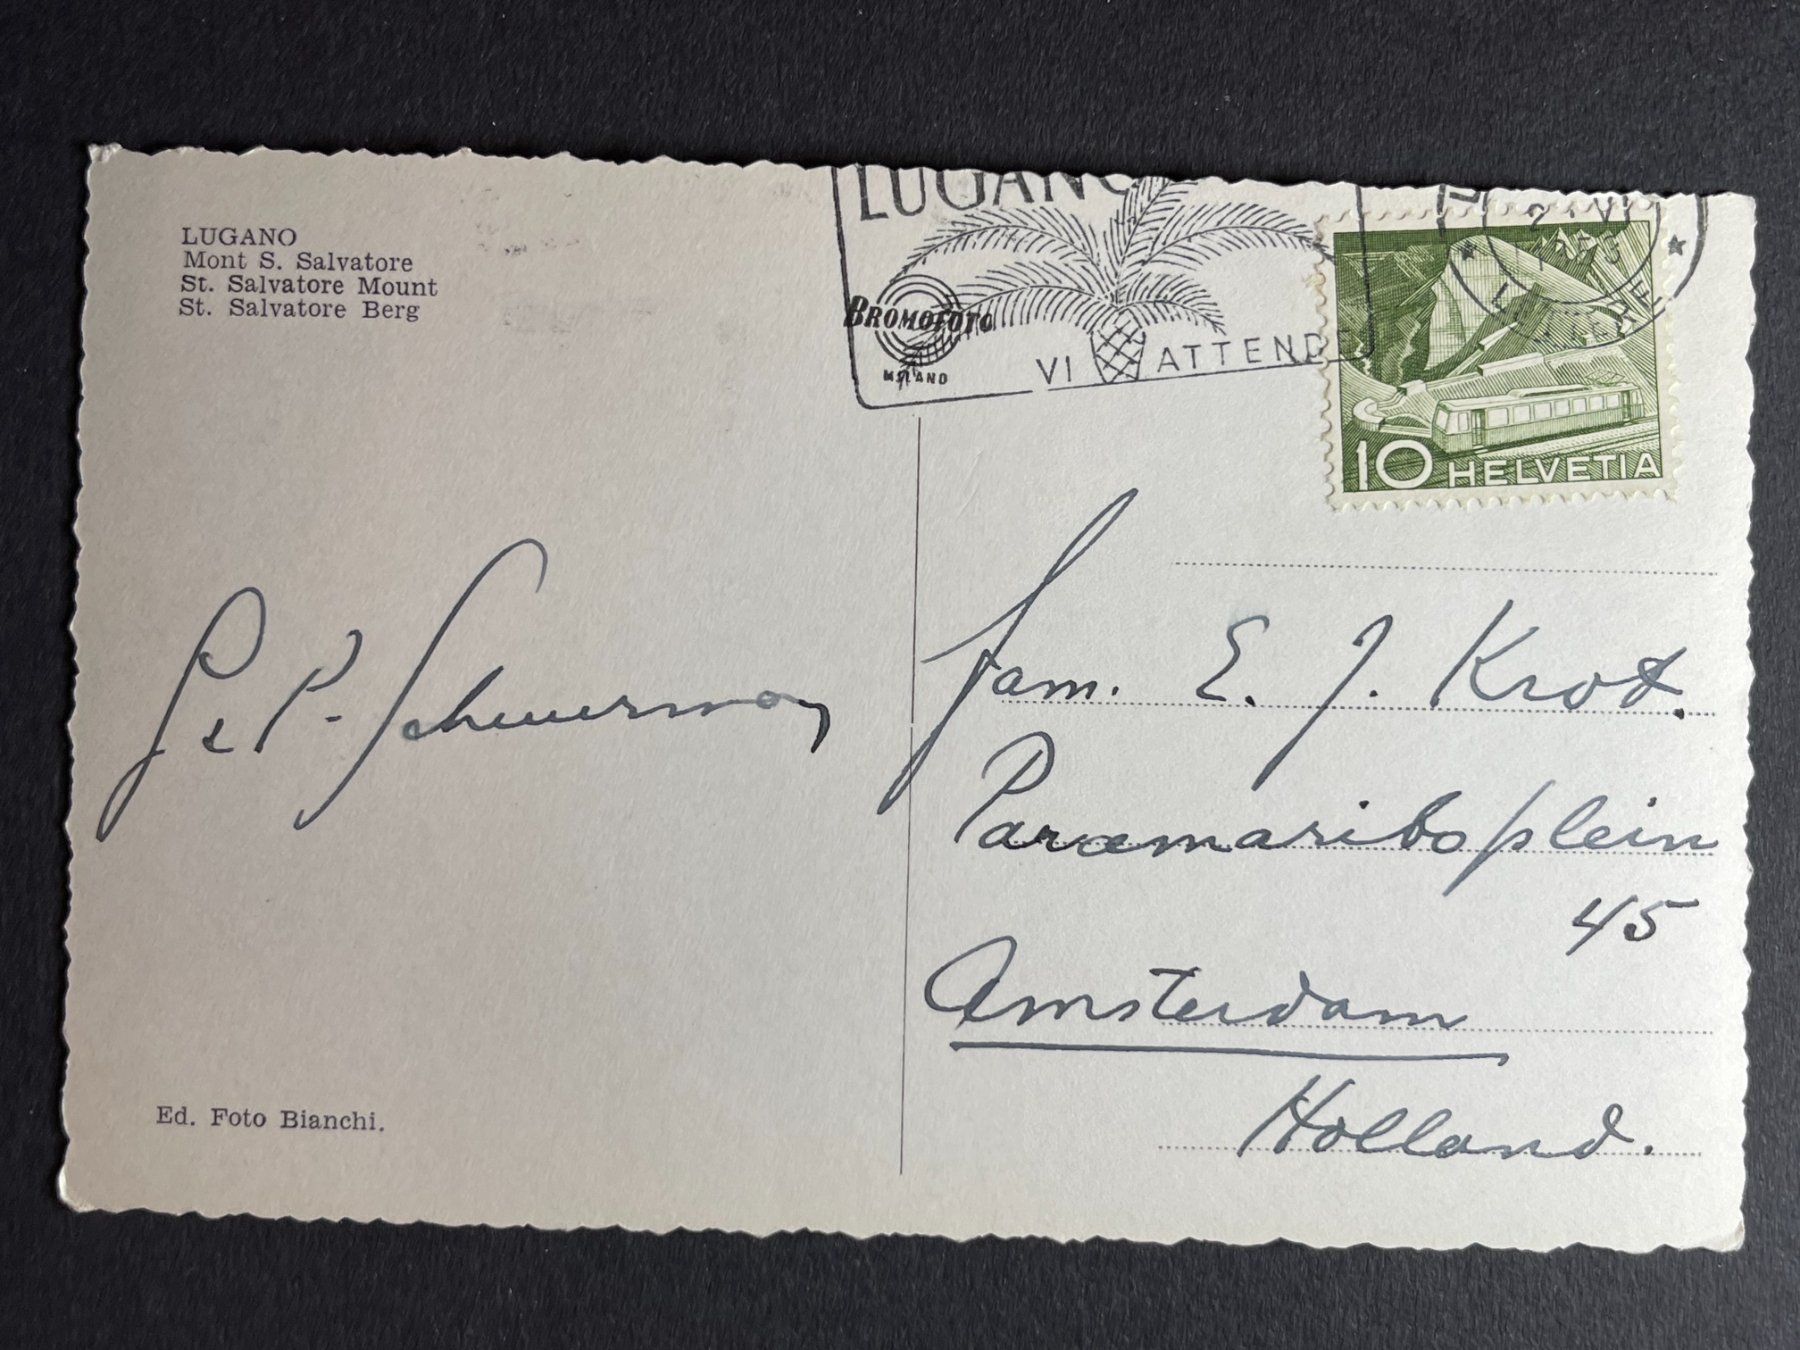 LUGANO
Mont S. Salvatore
St. Salvatore Mount
St. Salvatore Berg
LUGANO
BROMOFOTO
MILANO
VI ATTENDE
10 HELVETIA
P. Scheuerman
Fam. E. J. Krot.
Paramariboplein
45
Amsterdam
Holland.
Ed. Foto Bianchi.